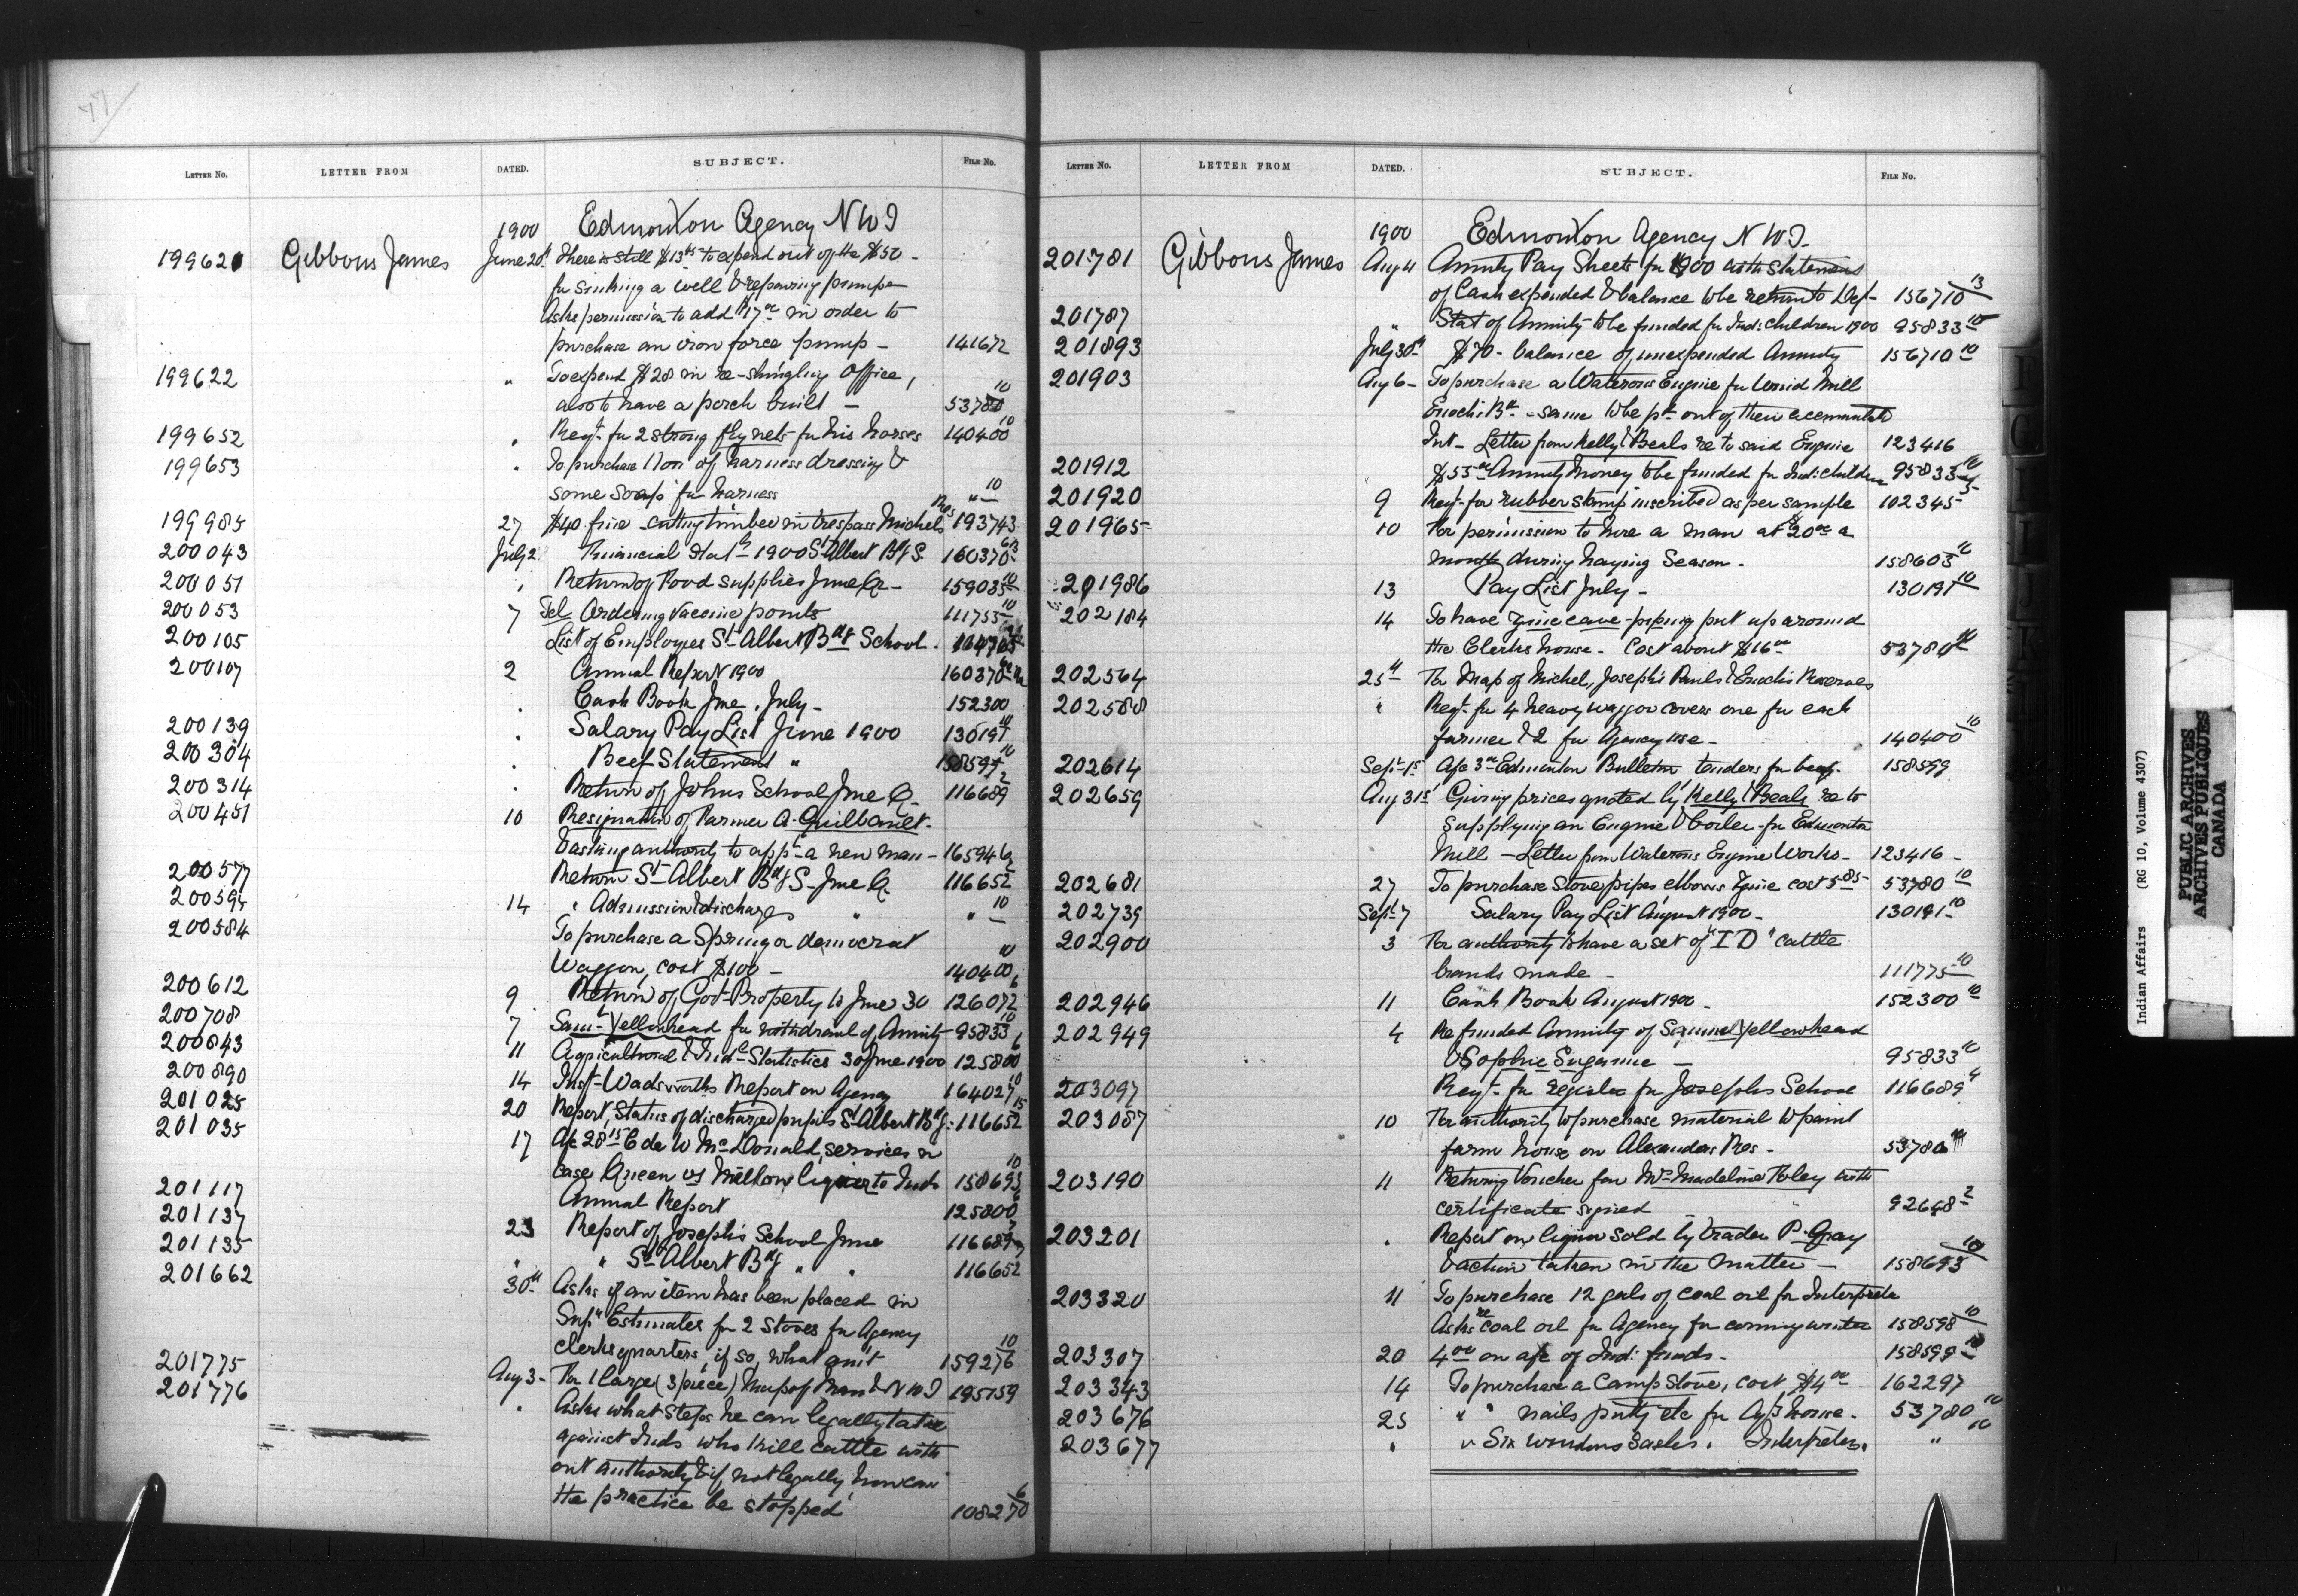 77/
LETTER No. LETTER FROM DATED. SUBJECT. FILE No.
1900 Edmonton Agency N W T
199621 Gibbons James June 20th There is still $13 to expend out of the $50 -
for sinking a well & repairing pump
Asks permission to add $17 00 in order to
purchase an iron force pump - 141672
199622 " To expend $28 in re-shingling Office,
also to have a porch built - 53780 10
199652 " Reqt. for 2 strong fly nets for his horses 140400 10
199653 " To purchase 1 Don of harness dressing &
some soap for harness " 10
199985 27 $40 fine - cutting timber in trespass Michels Res 193743
200043 July 2 Financial Stat 1900 St Albert Bdg S. 160370
200051 " Return of Food Supplies June Qr - 159035 10
200053 7 Tel Ordering Vaccine points 111755 10
200105 List of Employees St Albert Bdg School.
200107 2 Annual Report 1900 160370
" Cash Book June, July - 152300
200139 " Salary Pay List June 1900 130191 10
200304 " Beef Statement " 158599 10
200314 " Return of Johns School June Qr 116689 2
200451 10 Resignation of Farmer A. Guilbault -
& asking authority to appt a new man - 165946
200577 Return St Albert Bdg S - June Qr 116652
200594 14 " Admission & discharges " " 10
200584 To purchase a Spring or democrat
Waggon, cost $100 - 140400 10
200612 9 Return of Govt Property to June 30 126072 6
200708 7 Saml Yellowhead for withdrawal of Annuity 95833 10
200843 11 Agricultural & Indl Statistics 30 June 1900 125800 6
200890 14 Inst. Wadsworths Report on Agency 164027 10
201025 20 Report, Status of discharged pupils St Albert Bdg: 116652 15
201035 17 A/c 28 15 C de W McDonald, services in
case Queen vs Milton liquor to Inds 158693 10
201117 Annual Report 125800 6
201137 23 Report of Josephs School June 116689
201135 " " St Albert Bdg " " 116652
201662 30th Asks if an item has been placed in
Supy Estimates for 2 Stoves for Agency
clerks quarters, if so, what amt 159276 10
201775 Aug 3 - For 1 large (3 piece) Map of Man & N W T 195159
201776 " Asks what Steps he can legally take
against Inds who kill cattle with
out authority & if, not legally, how can
the practice be stopped 108270 6
LETTER No. LETTER FROM DATED. SUBJECT. FILE No.
1900 Edmonton Agency N W T -
201781 Gibbons James Aug 4 Annuity Pay Sheets for 1900 with Statement
of Cash expended & balance to be return to Dep - 156710 13
201787 " Stat of Annuity to be funded for Ind: children 1900 95833 10
201893 July 30th $70 - balance of unexpended Annuity 156710 10
201903 Aug 6 - To purchase a Waterous Engine for Mill
Enoch's Bd - same to be pd out of their accumulated
Int - Letter from Kelly & Beals re to said Engine 123416
201912 $55 00 Annuity Money to be funded for Ind: children 95833 10
201920 9 Reqt. for rubber stamp inscribed as per sample 102345
201965 10 For permission to hire a man at $20 00 a
month during haying Season - 158603 10
201986 13 Pay List July - 130191 10
202184 14 To have zinc eave - piping put up around
the Clerks house - Cost about $16 00 53780 10
202564 25th For Map of Michel, Joseph's Pauls & Enochs Reserves
202588 " Reqt. for 4 heavy waggon covers one for each
farmer & 2 for Agency use - 140400 10
202614 Sept 1st A/c 3 00 Edmonton Bulletin tenders for beef. 158599
202659 Aug 31st Giving prices quoted by Kelly & Beals re to
supplying an Engine & boiler for Edmonton
Mill - Letter from Waterous Engine Works - 123416 -
202681 27 To purchase Stovepipes, elbows & zinc cost 5 85 - 53780 10
202739 Sept 7 Salary Pay List August 1900 - 130191 10
202900 3 For authority to have a set of "I D" cattle
brands made - 111775 10
202946 11 Cash Book August 1900 - 152300 10
202949 4 Refunded Annuity of Samuel Yellowhead
& Sophie Suganne - 95833 10
203097 Reqt. for register for Josephs School 116689 4
203087 10 For authority to purchase material to paint
farm house on Alexanders Res - 53780 10
203190 11 Returing Voucher for Mrs Madeline Foley with
certificate signed 92648 2
203201 " Report on liquor sold by trader P. Gray
& action taken in the Matter - 158693 10
203320 11 To purchase 12 gals of coal oil for Interpreter
Asks re coal oil for Agency for coming winter 158598 10
203307 20 4 00 on a/c of Ind: funds - 158599 10
203343 14 To purchase a Camp Stove, cost $4 00 162297
203676 25 " " nails putty etc for Ag's house - 53780 10
203677 " " Six windows Sashes. Interpreters " 10
Indian Affairs (RG 10, Volume 4307)
PUBLIC ARCHIVES
ARCHIVES PUBLIQUES
CANADA